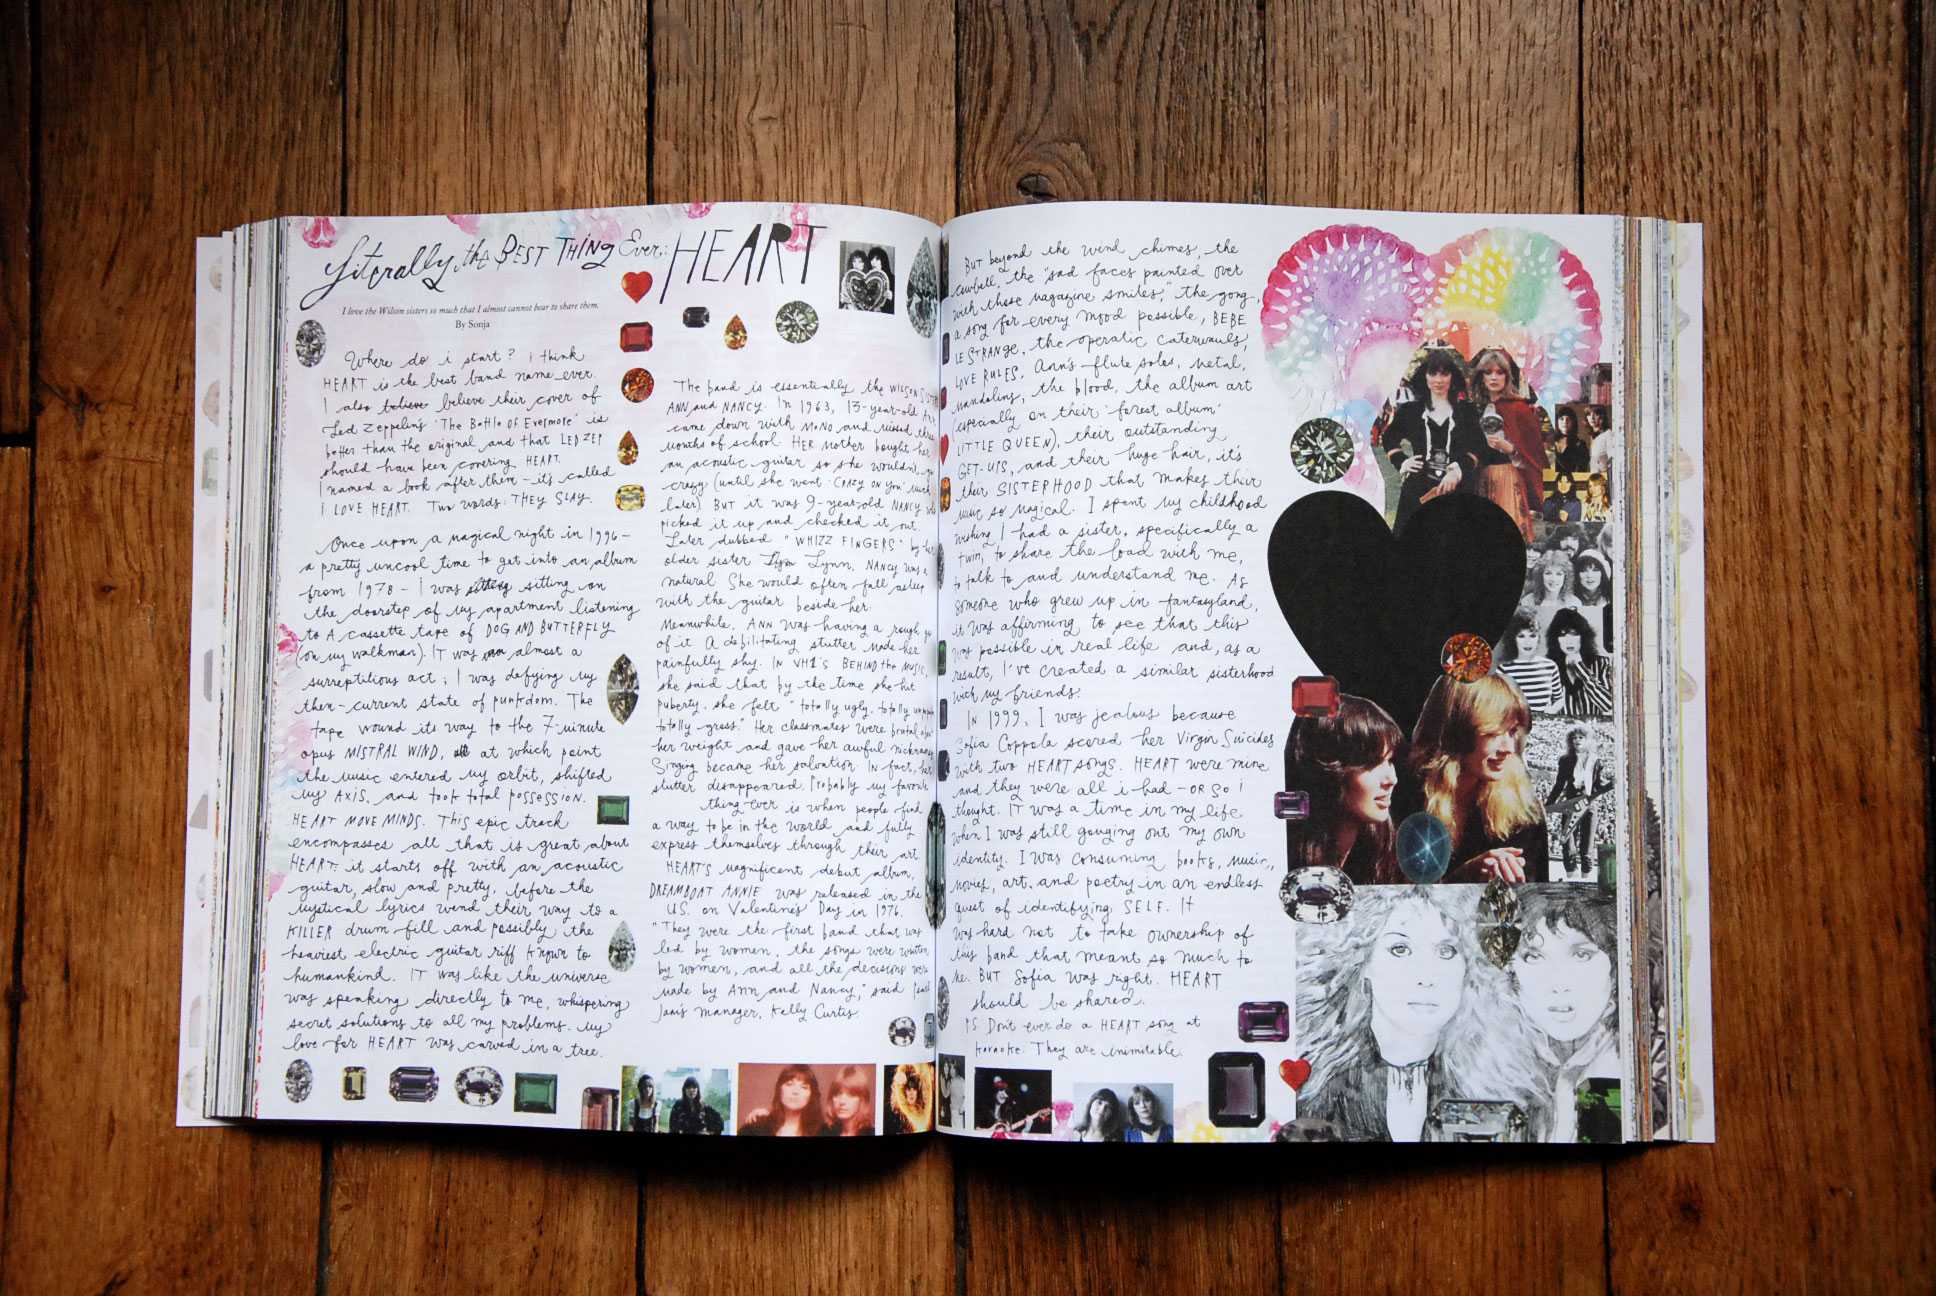 Literally the BEST THING Ever: HEART
I love the Wilson sisters so much that I almost cannot bear to share them.
By Sonja
Where do i start? I think
HEART is the best band name ever.
I also believe believe their cover of
Led Zeppelin's 'The Battle of Evermore' is
better than the original and that LED ZEP
should have been covering HEART.
I named a book after them – it's called
I LOVE HEART. Two words: THEY SLAY.
Once upon a magical night in 1996 –
a pretty uncool time to get into an album
from 1978 – I was sitting on
the doorstep of my apartment listening
to A cassette tape of DOG AND BUTTERFLY
(on my walkman). IT was almost a
surreptitious act; I was defying my
then-current state of punkdom. The
tape wound its way to the 7-minute
opus MISTRAL WIND, at which point
the music entered my orbit, shifted
my AXIS, and took total possession.
HEART MOVE MINDS. This epic track
encompasses all that is great about
HEART: it starts off with an acoustic
guitar, slow and pretty, before the
mystical lyrics wend their way to a
KILLER drum fill and possibly the
heaviest electric guitar riff known to
humankind. IT was like the universe
was speaking directly to me, whispering
secret solutions to all my problems. My
love for HEART was carved in a tree.
The band is essentially the WILSON
ANN and NANCY. In 1963, 13-year-old Ann
came down with MONO and missed three
months of school. HER mother bought her
an acoustic guitar so she wouldn't go
crazy (until she went 'CRAZY ON YOU' much
later) BUT it was 9-year-old NANCY who
picked it up and checked it out.
Later dubbed "WHIZZ FINGERS" by her
older sister Lynn, NANCY was a
natural She would often fall asleep
with the guitar beside her.
Meanwhile, ANN was having a rough go
of it A debilitating stutter made her
painfully shy. IN VH1'S BEHIND the MUSIC,
she said that by the time she hit
puberty, she felt "totally ugly, totally
totally gross." Her classmates were brutal about
her weight and gave her awful nicknames
Singing became her salvation IN fact, her
stutter disappeared. Probably my favorite
thing ever is when people find
a way to be in the world and fully
express themselves through their art.
HEART'S magnificent debut album,
DREAMBOAT ANNIE was released in the
U.S. on Valentine's Day in 1976.
"They were the first band that was
led by women, the songs were written
by women, and all the decisions were
made by Ann and Nancy," said
manager, Kelly Curtis.
BUT beyond the wind chimes, the
cowbell, the "sad faces painted over
with those magazine smiles," the gong,
a song for every mood possible, BEBE
LE STRANGE, the operatic caterwauls,
LOVE RULES, Ann's flute solos, metal,
mandolins, the blood, the album art
(especially on their 'forest album'
LITTLE QUEEN), their outstanding
GET-UPS, and their huge hair, it's
their SISTERHOOD that makes their
music so magical. I spent my childhood
wishing I had a sister, specifically a
twin, to share the load with me,
to talk to and understand me. As
someone who grew up in fantasyland,
it was affirming to see that this
was possible in real life and, as a
result, I've created a similar sisterhood
with my friends.
IN 1999, I was jealous because
Sofia Coppola scored her Virgin Suicides
with two HEART songs. HEART were mine
and they were all i had – OR SO I
thought. IT was a time in my life
when I was still gouging out my own
identity. I was consuming books, music,
movies, art, and poetry in an endless
quest of identifying SELF. It
was hard not to take ownership of
this band that meant so much to
me. BUT Sofia was right. HEART
should be shared.
PS Don't ever do a HEART song at
Karaoke. They are inimitable.